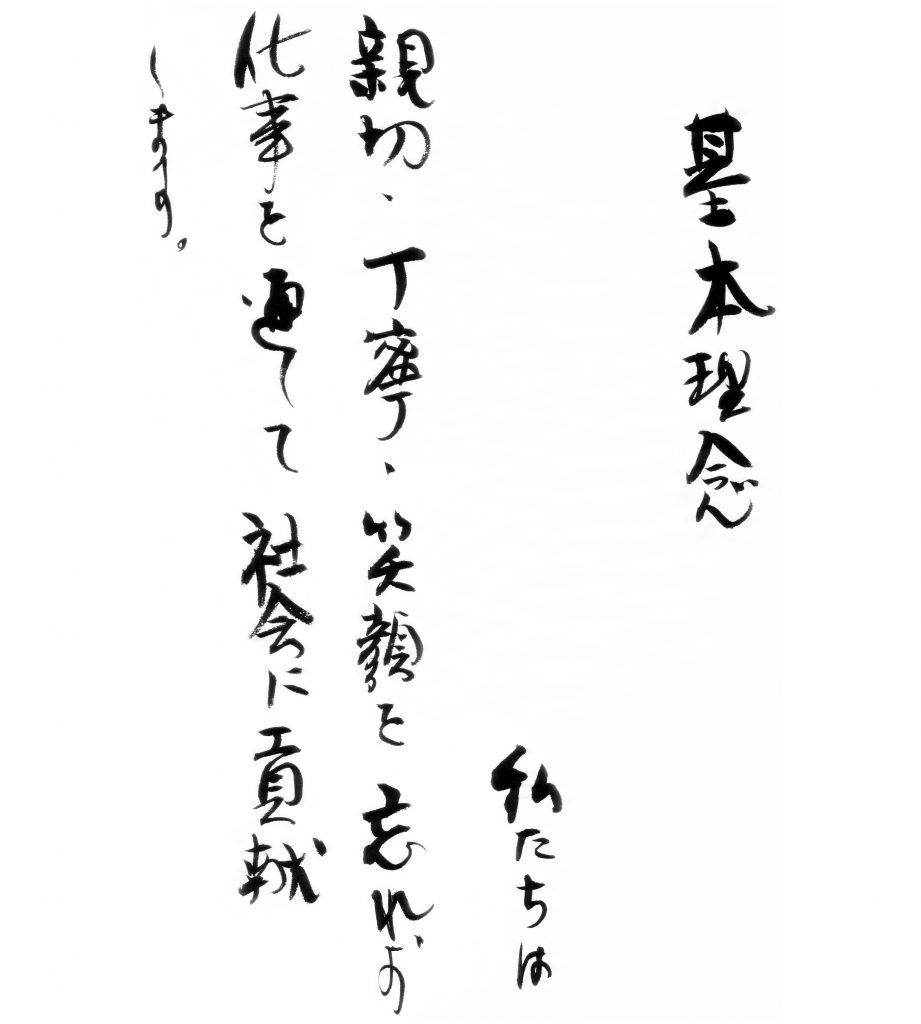 基本理念
私たちは
親切、丁寧、笑顔を忘れず
仕事を通して社会に貢献
します。